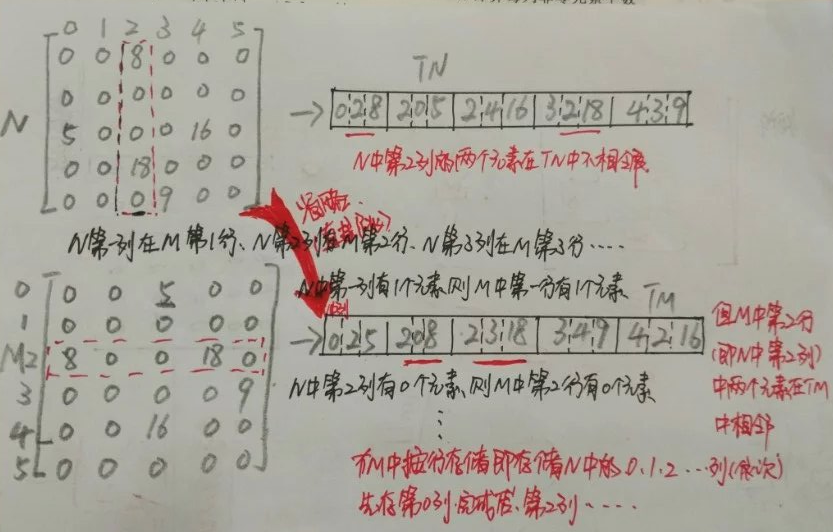 0 1 2 3 4 5
0 0 8 0 0 0
0 0 0 0 0 0
N
5 0 0 0 16 0
0 0 18 0 0 0
0 0 0 9 0 0
TN
→ 0 2 8 2 0 5 2 4 16 3 2 18 4 3 9
N中第2列的两个元素在TN中不相邻
N第一列在M第1行、N第2列在M第2行、N第3列在M第3行……
N中第一列有1个元素则M中第一行有1个元素
TM
0 0 0 5 0 0
1 0 0 0 0 0
M2 8 0 0 18 0
3 0 0 0 0 9
4 0 0 16 0 0
5 0 0 0 0 0
→ 0 2 5 2 0 8 2 3 18 3 4 9 4 2 16
但M中第2行
(即N中第2列)
中两个元素在TM
中相邻
N中第2列有0个元素,则M中第2行有0个元素
⋮
M中按行存储即存储N中的0.1.2…列(依次)
先存第0列.完成后.第2列……